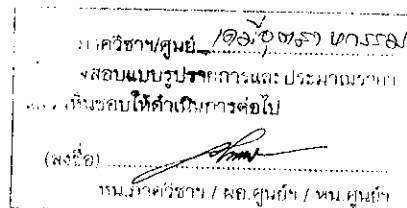 ภาควิชาฯ/ศูนย์ เคมีอุตสาหกรรม
สอบแบบรูปรายการและประมาณราคา
เห็นชอบให้ดำเนินการต่อไป
(ลงชื่อ)
หน.ภาควิชาฯ / ผอ.ศูนย์ฯ / หน.ศูนย์ฯ